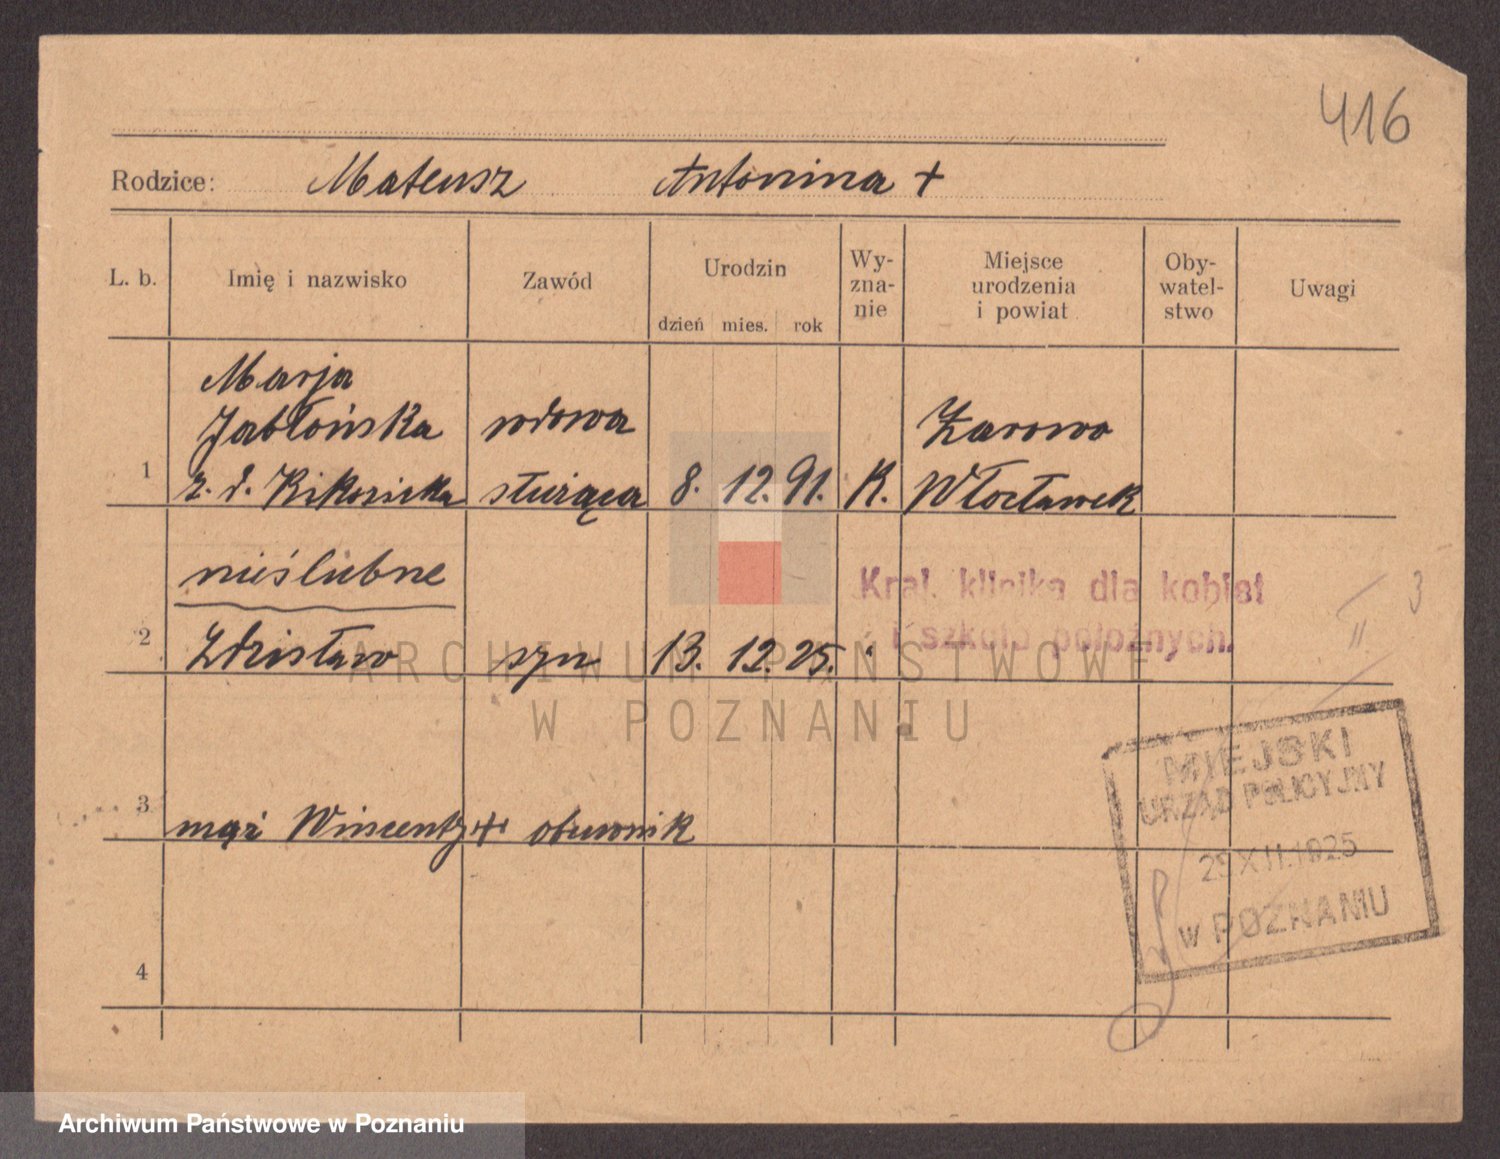 416
Rodzice: Mateusz Antonina +
L. b. Imię i nazwisko Zawód Urodzin dzień mies. rok Wy-zna-nie Miejsce urodzenia i powiat Oby-watel-stwo Uwagi
Marja
Jabłońska wdowa Żarowo
1 z. d. służąca 8. 12. 91. K. Włocławek
nieślubne
Kraj. klinika dla kobiet
i szkoła położnych.
3
2 Zdzisław syn 13. 12. 25. "
ARCHIWUM PAŃSTWOWE
W POZNANIU
MIEJSKI
URZĄD POLICYJNY
29 XII. 1925
w POZNANIU
3 mąż Wincenty + obuwnik
4
Archiwum Państwowe w Poznaniu